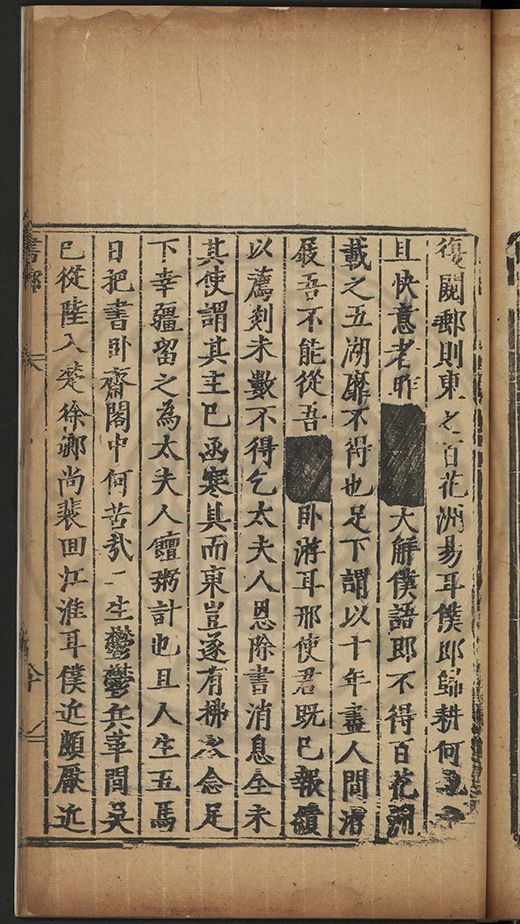 復闢鄴則東之百花洲易耳僕即歸耕何
且快意老昨大解僕語耶不得百花洲
載之五湖靡不得也足下謂以十年畫人間游
展吾不能從吾臥游耳那使君旣已報
以薦剡未數不得乞太夫人恩除書消息全未
其使謂其主已函寒具而東豈遂有拂衣念足
下幸疆留之為太夫人饘粥計也且人生五馬
日把書卧齋閣中何苦哉一生鬱鬱兵革間吳
已從陸入楚徐卿尚裴回江淮耳僕近頗厭近